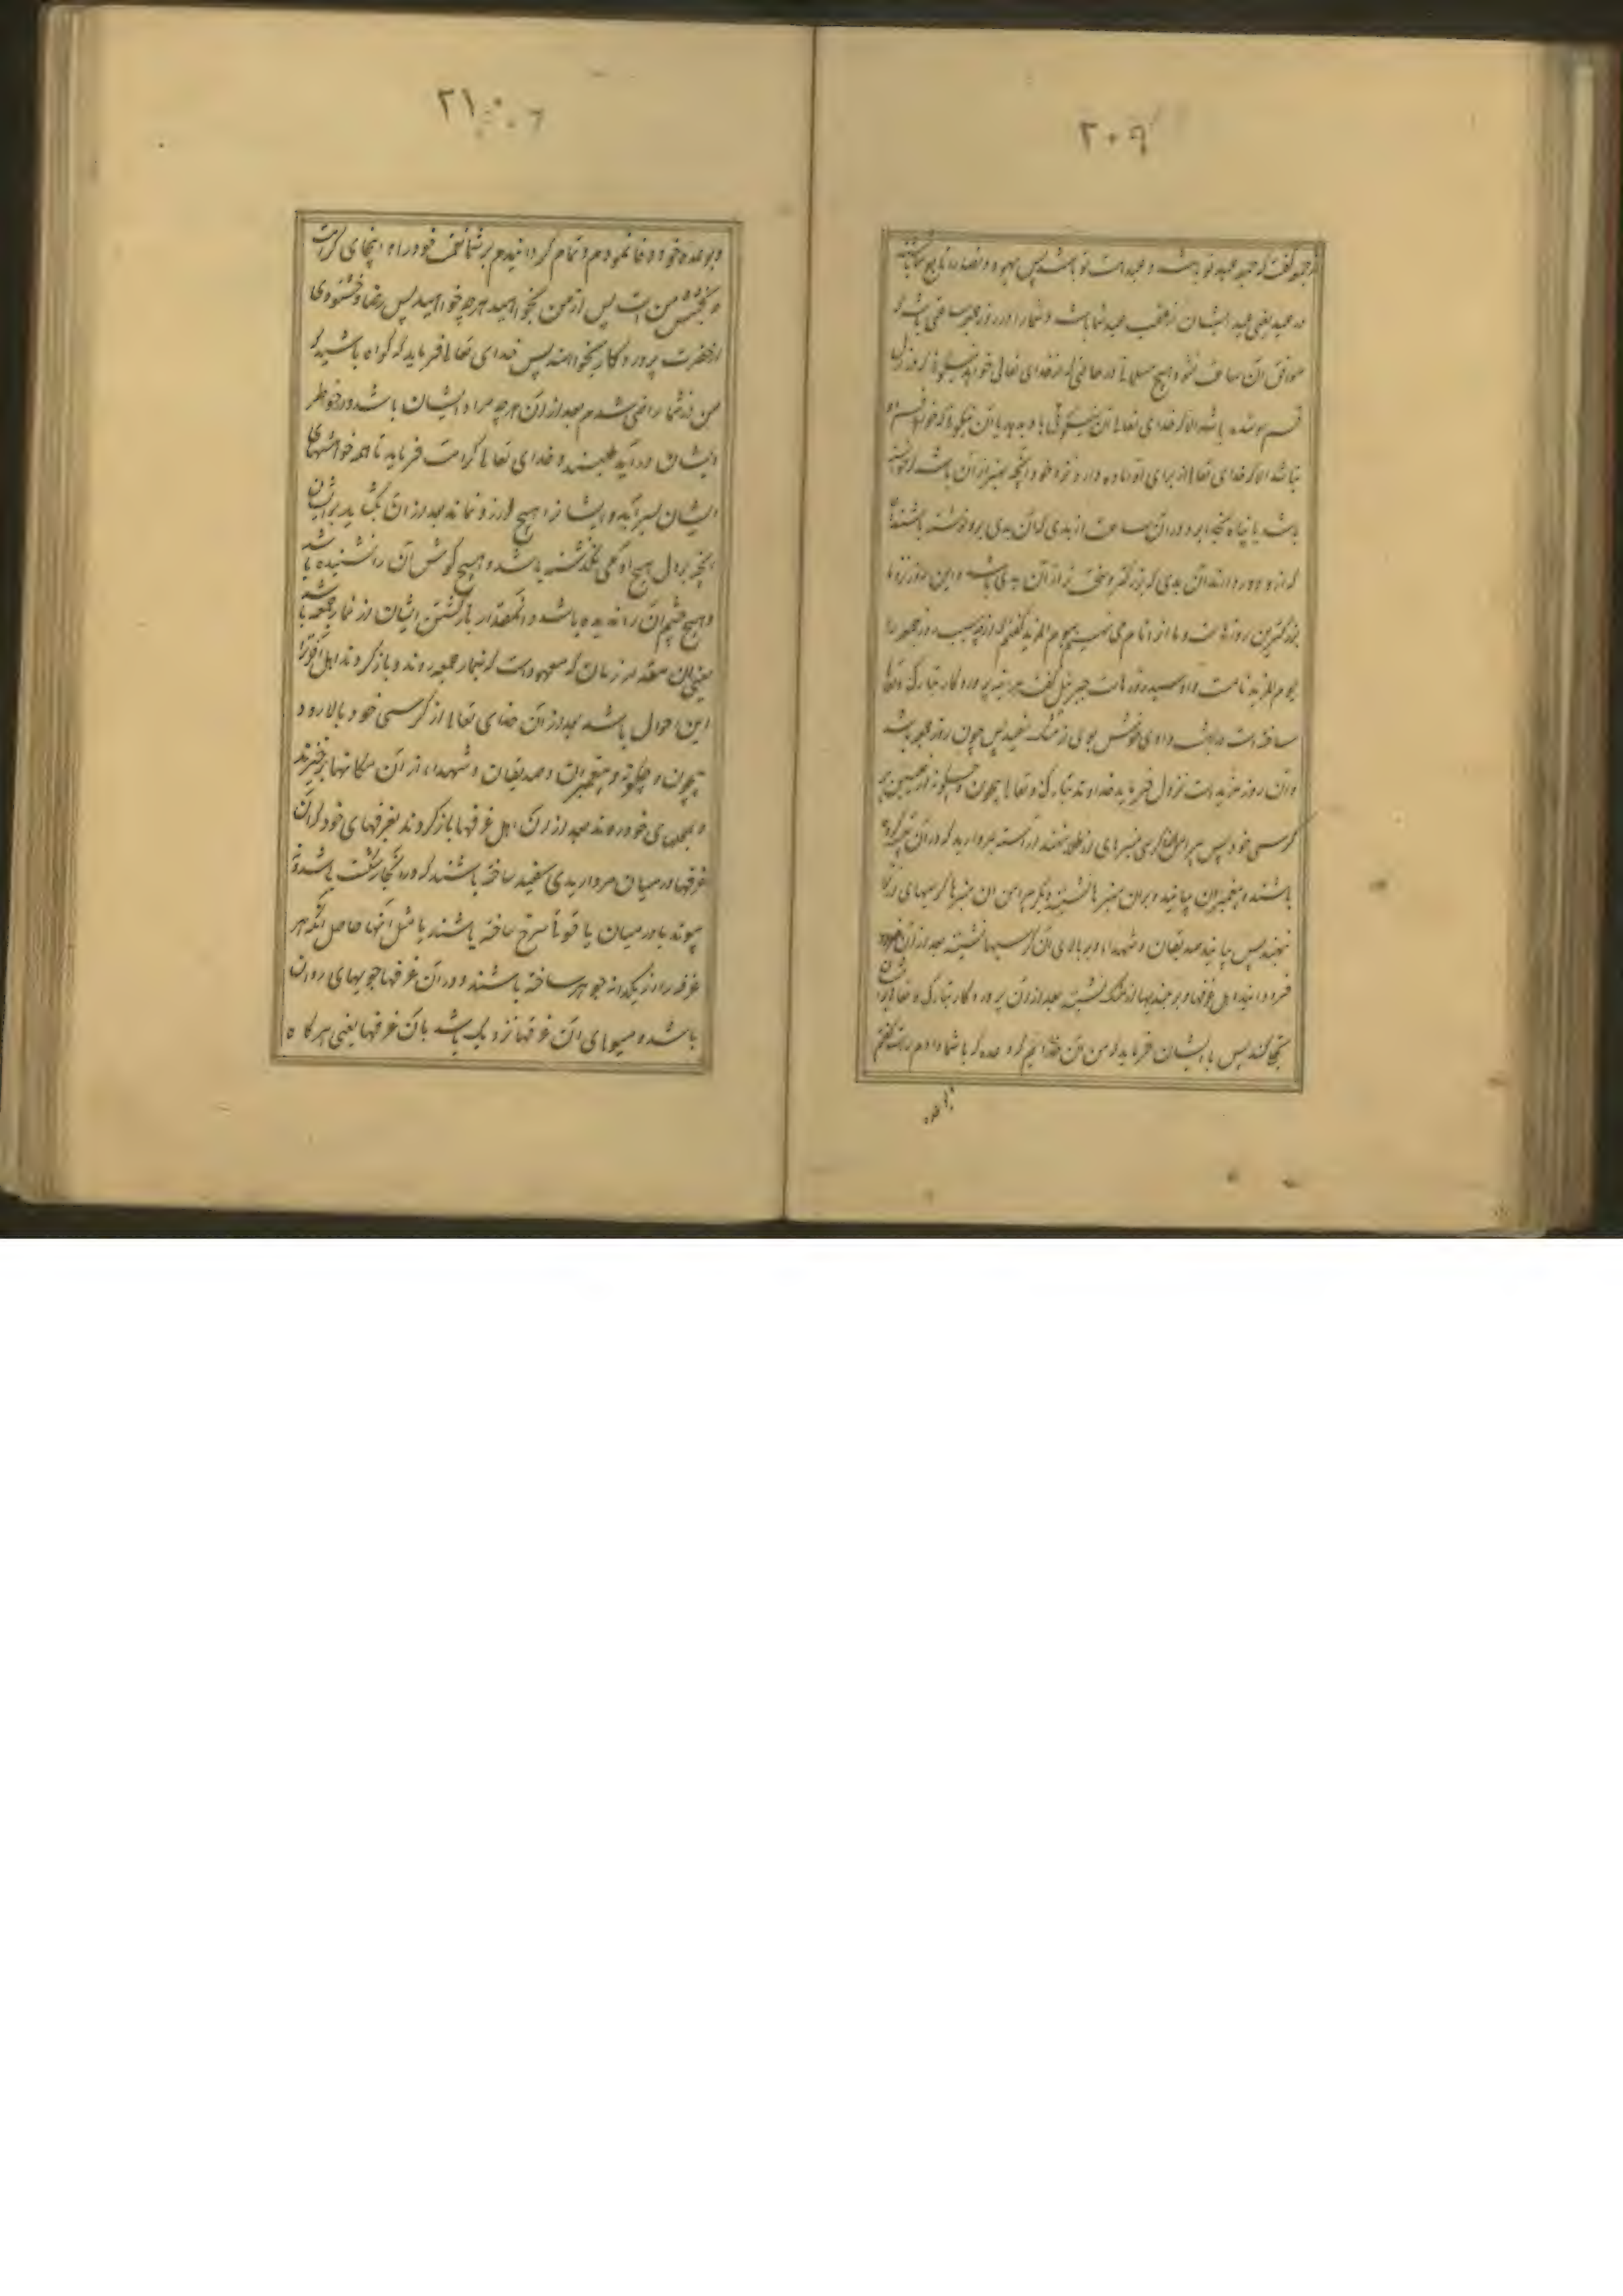 ۲۰۹
جمعه گفت که جمعه عید تو باشد و عید امت تو باشد پس یهود و نصارا تابع شما باشند
در عید یعنی عید ایشان از عقب عید شما باشد و شما را در روز جمعه ساعتی باشد که
موافق آن ساعت نشود هیچ مسلمانی در حالتی که از خدای تعالی خواهد نیکوئی که روزی
قسم شده باشد الا که خدای تعالی آن نیکوئی باو بدهد یا آن نیکوئی که خواهد قسم او
نباشد الا که خدای تعالی از برای او آماده دارد نزد خود آنچه بهتر از آن باشد که خواسته
باشد یا پناه بخدا برد در آن ساعت از بدی که آن بدی برو نوشته باشند
که ازو دور دارند آن بدی که بزرگتر و سخت تر از آن بدی باشد و این روز نزد ما
بزرگترین روزهاست و ما او را نام می نهیم یوم المزید گفتم که از چه سبب روز جمعه را
یوم المزید نامست و او سید روزهاست جبرئیل گفت هر آینه پروردگار تبارک و تعالی
ساخته است در بهشت وادی خوش بوی از مشک سفید پس چون روز جمعه باشد
و آن روز مزید است نزول فرماید خداوند تبارک و تعالی بیچون و چگونه از علیین بر
کرسی خود پس پیرامن آن کرسی منبرهای از طلا بنهند آراسته بمروارید که در آن
باشند و پیغمبران بیایند و بران منبرها نشینند و دیگر پیرامن آن منبرها کرسیهای از
بنهند پس بیایند صدیقان و شهدا و بر بالای آن کرسیها نشینند بعد از آن فرود
فرود آیند اهل غرفها و بر پشتهای از مشک نشینند بعد از آن پروردگار تبارک و تعالی برایشان
تجلی کند پس با ایشان فرماید که من آن خدایم که وعده که با شما دادم راست گفتم
با وعده
۲۱۰
و بوعده خود وفا نمودم و تمام گردانیدم بر شما نعمت خود را و اینجای کرامت
و بخشش منست پس از من بخواهید هرچه خواهید پس رضا و خشنودی
از حضرت پروردگار بخواهند پس خدای تعالی فرماید که گواه باشید که
من از شما راضی شدم بعد از آن هرچه مراد ایشان باشد و در خاطر
ایشان در آید طلبند و خدای تعالی کرامت فرماید تا همه خواهشهای
ایشان بسر آید و ایشانرا هیچ آرزو نماند بعد از آن بگشاید برایشان
آنچه بر دل هیچ آدمی نگذشته باشد و هیچ گوش آن را نشنیده باشد
و هیچ چشم آن را ندیده باشد و آنمقدار بازگشتن ایشان از نماز جمعه باشد
یعنی آن مقدار زمان که معهودست که بنماز جمعه روند و باز گردند اهل آخرت را
این احوال باشد بعد از آن خدای تعالی از کرسی خود بالا رود
بیچون و چگونه و پیغمبران و صدیقان و شهدا، از آن مکانها برخیزند
و بجاهای خود روند بعد از آن اهل غرفها باز گردند بغرفهای خود که آن
غرفها در میان مرواریدی سفید ساخته باشند که درو نه شکست باشد و نه
پیوند یا در میان یاقوتی سرخ ساخته باشند یا مثل آنها حاصل آنکه هر
غرفه را از یکدانه جوهر ساخته باشند و در آن غرفها جویهای روان
باشد و میوهای آن غرفها نزدیک باشد بآن غرفها یعنی هر گاه